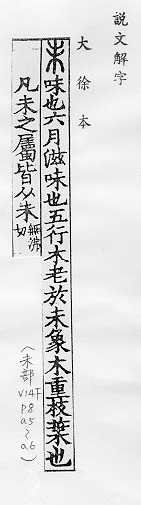 説文解字
大徐本
未味也六月滋味也五行木老於未象木重枝葉也
凡未之屬皆从未無沸切
(未部
V14下
p8
a5
~
a6)